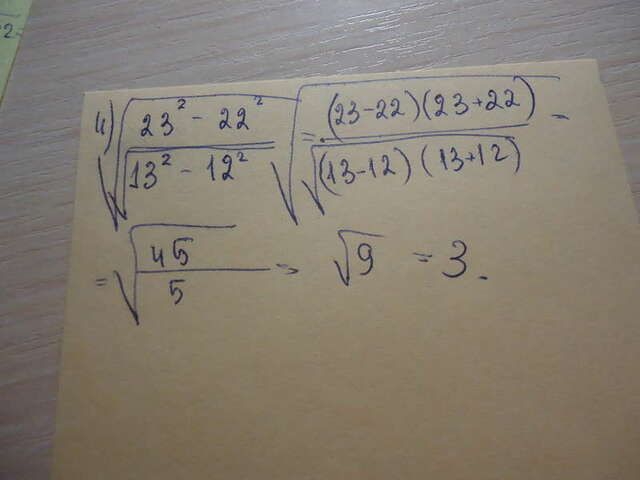 4) √((23² - 22²)/√(13² - 12²)) = √((23-22)(23+22)/√((13-12)(13+12))) =
= √(45/5) = √9 = 3.